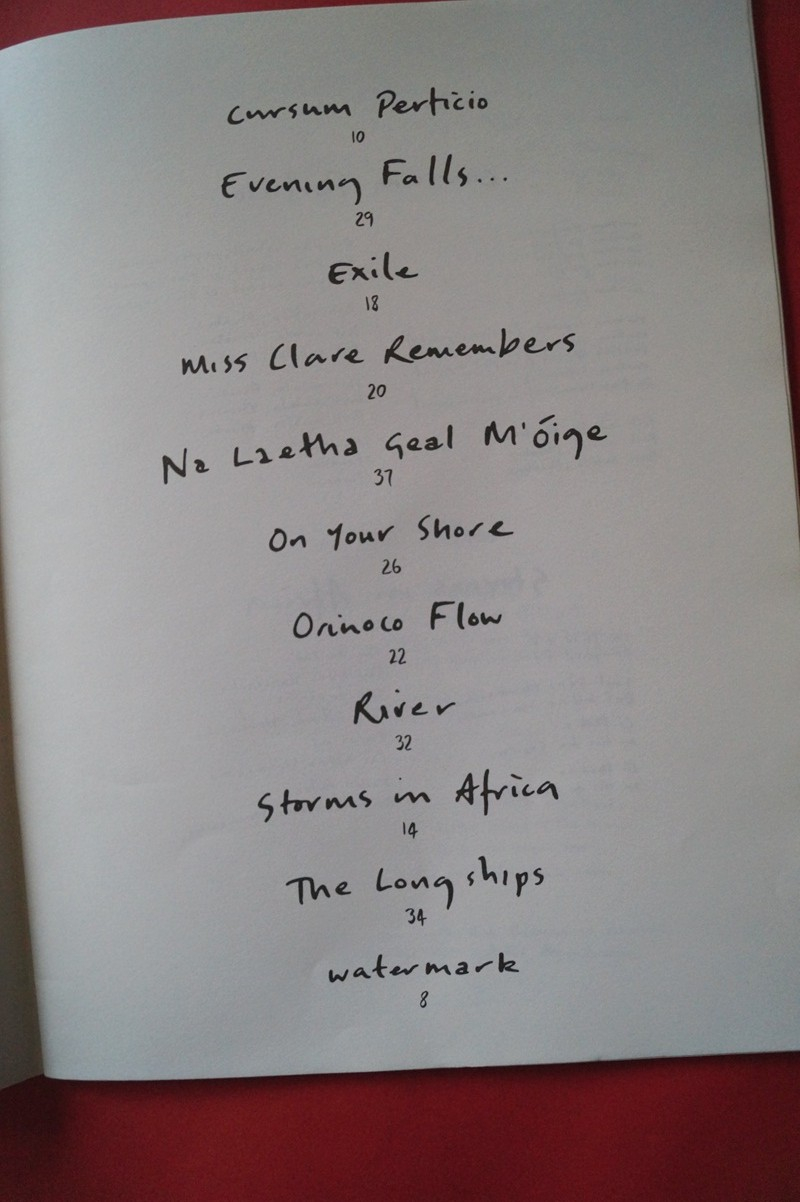 Cursum Perticio
10
Evening Falls...
29
Exile
18
Miss Clare Remembers
20
Na Laetha Geal M'óige
37
On Your Shore
26
Orinoco Flow
22
River
32
Storms in Africa
14
The Long ships
34
watermark
8